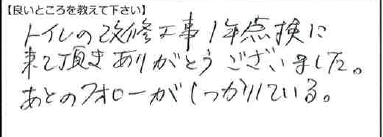 【良いところを教えて下さい】
トイレの改修工事1年点検に
来て頂きありがとうございました。
あとのフォローがしっかりしている。